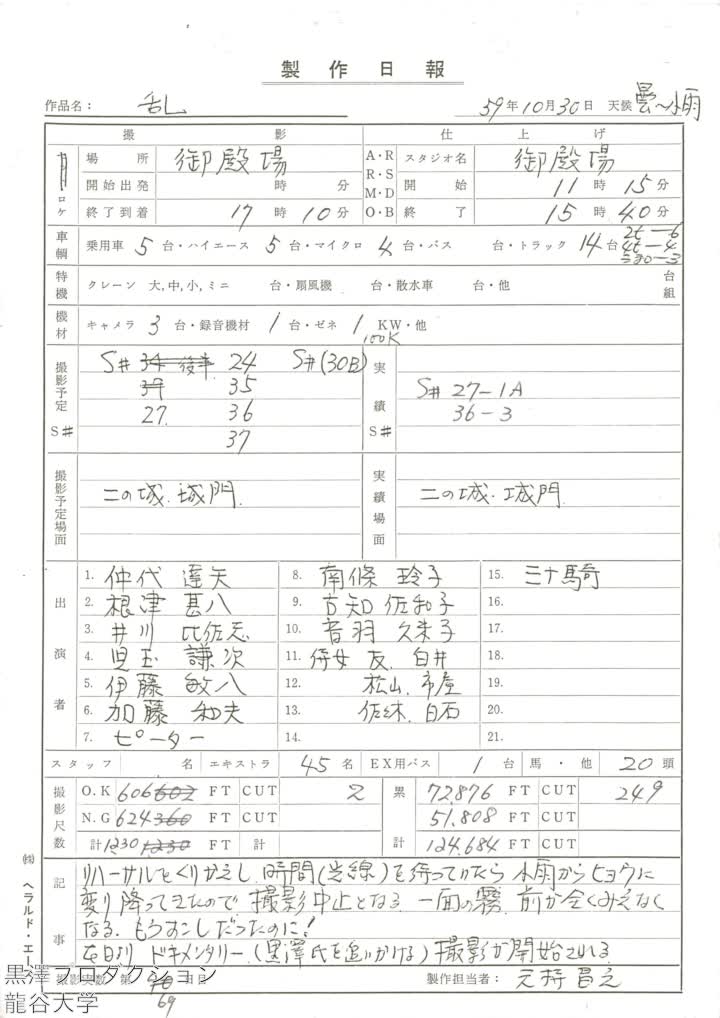 製作日報
作品名： 乱 59年10月30日 天候 曇〜小雨
撮影 仕上げ
ロケ 場所 御殿場 A・R R・S M・D O・B スタジオ名 御殿場
開始出発 時 分 開始 11時15分
終了到着 17時10分 終了 15時40分
車輌 乗用車 5台・ハイエース 5台・マイクロ 4台・バス 台・トラック 14台 2t－6 4t－4
特機 クレーン 大,中,小,ミニ 台・扇風機 台・散水車 台・他 台組
機材 キャメラ 3台・録音機材 1台・ゼネ 1 KW・他
100K
撮影予定 S# S# 34 後半 24 S#(30B) 実績 S#
39 35 S# 27－1A
27. 36 36－3
37
撮影予定場面 二の城. 城門. 実績場面 二の城. 城門.
出演者
1. 仲代 達矢 8. 南條 玲子 15. 三十騎
2. 根津 甚八 9. 古知 佐和子 16.
3. 井川 比佐志 10. 音羽 久米子 17.
4. 児玉 謙次 11. 侍女 友. 白井 18.
5. 伊藤 敏八 12. 松山. 市屋 19.
6. 加藤 和夫 13. 佐々木. 白石 20.
7. ピーター 14. 21.
スタッフ 名 エキストラ 45名 EX用バス 1台 馬・他 20頭
撮影尺数 O.K 606 602 FT CUT 2 累計 72,876 FT CUT 249
N.G 624 360 FT CUT 51.808 FT CUT
計 1230 1230 FT 計 124.684 FT CUT
記事
リハーサルをくりかえし、時間(光線)を待っていたら 小雨からヒョウに
変り降ってきたので、撮影中止となる 一面の霧. 前が全くみえなく
なる. もうすこしだったのに!
本日より ドキメンタリー.(黒澤氏を追いかける)撮影が開始される
撮影実数 第 日目 製作担当者：
69
㈱ ヘラルド・エース
黒澤プロダクション
龍谷大学